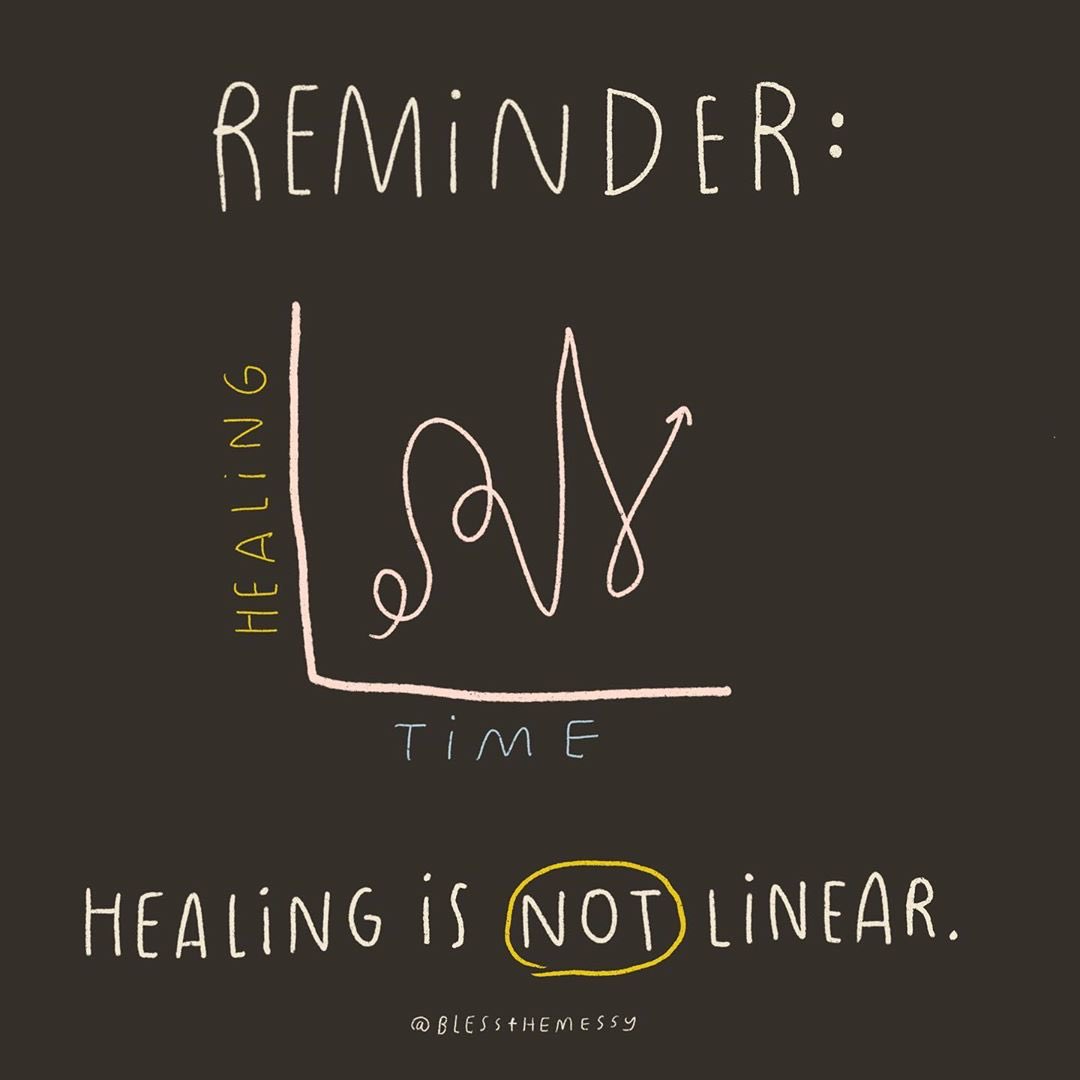 REMiNDER:
HEALiNG
TiME
HEALiNG iS NOT LiNEAR.
@BLESSTHEMESSY